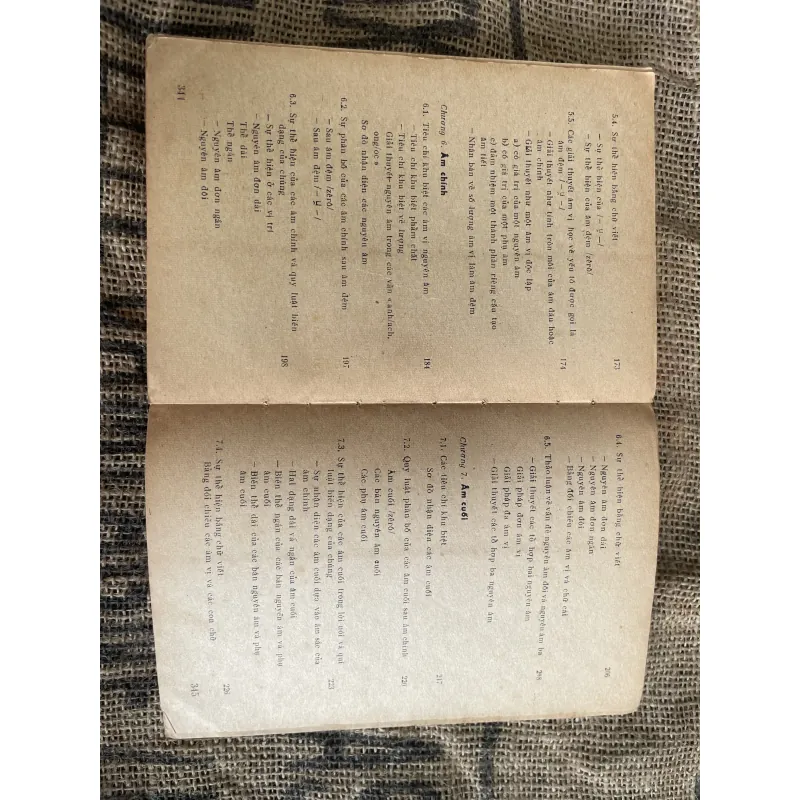 5.4. Sự thể hiện bằng chữ viết 173
— Sự thể hiện của /—ṷ—/
— Sự thể hiện của âm đệm /zêrô/
5.5. Các giải thuyết âm vị học về yếu tố được gọi là
âm đệm /—ṷ—/ 174
— Giải thuyết như tính tròn môi của âm đầu hoặc
âm chính
— Giải thuyết như một âm vị độc lập
a) có giá trị của một nguyên âm
b) có giá trị của một phụ âm
c) đảm nhiệm một thành phần riêng cấu tạo
âm tiết
— Nhận bàn về số lượng âm vị làm âm đệm
Chương 6. Âm chính
6.1. Tiêu chí khu biệt các âm vị nguyên âm 184
Tiêu chí khu biệt phẩm chất
— Tiêu chí khu biệt về lượng
Giải thuyết nguyên âm trong các vần «anh/ach,
ong/oc»
Sơ đồ nhận diện các nguyên âm
6.2. Sự phân bố của các âm chính sau âm đệm 197
— Sau âm đệm /zêrô/
— Sau âm đệm /—ṷ—/
6.3. Sự thể hiện của các âm chính và quy luật biến
dạng của chúng 198
— Sự thể hiện ở các vị trí
— Nguyên âm đơn dài
Thế dài
Thế ngắn
— Nguyên âm đơn ngắn
— Nguyên âm đôi
344
6.4. Sự thể hiện bằng chữ viết 206
— Nguyên âm đơn dài
— Nguyên âm đơn ngắn
— Nguyên âm đôi
— Bảng đối chiếu các âm vị và chữ cái
6.5. Thảo luận về vấn đề nguyên âm đôi và nguyên âm ba 208
— Giải thuyết các tổ hợp hai nguyên âm
Giải pháp đơn âm vị
Giải pháp đa âm vị
— Giải thuyết các tổ hợp ba nguyên âm
Chương 7. Âm cuối
7.1. Các tiêu chí khu biệt 217
Sơ đồ nhận diện các âm cuối
7.2. Quy luật phân bố của các âm cuối sau âm chính 220
Âm cuối /zêrô/
Các bán nguyên âm cuối
Các phụ âm cuối
7.3. Sự thể hiện của các âm cuối trong lời nói và qui
luật biến dạng của chúng 223
— Sự nhận diện các âm cuối dựa vào âm sắc của
âm chính
— Hai dạng dài và ngắn của âm cuối
— Biến thể ngắn của các bán nguyên âm và phụ
âm cuối
— Biến thể dài của các bán nguyên âm và phụ
âm cuối
7.4. Sự thể hiện bằng chữ viết 226
Bảng đối chiếu các âm vị và các con chữ
345